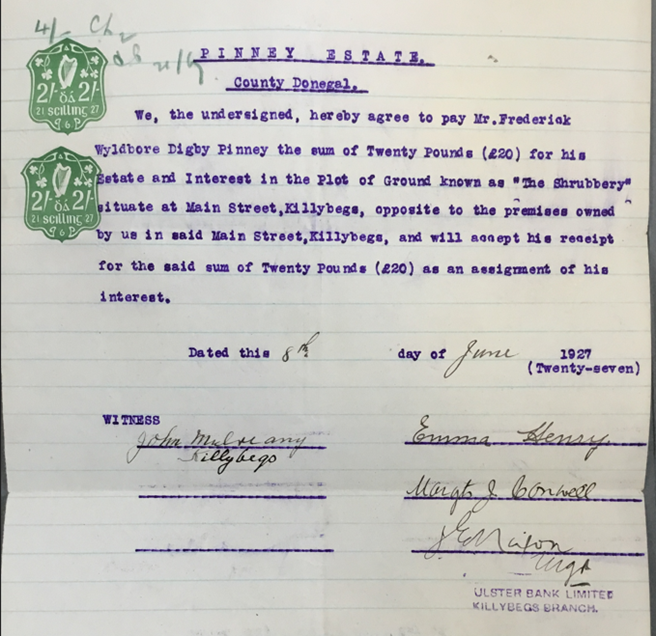 4/-
PINNEY ESTATE.
County Donegal.
2/- dá 2/-
21 scilling 27
We, the undersigned, hereby agree to pay Mr.Frederick
Wyldbore Digby Pinney the sum of Twenty Pounds (£20) for his
Estate and Interest in the Plot of Ground known as "The Shrubbery"
2/- dá 2/-
21 scilling 27
situate at Main Street,Killybegs, opposite to the premises owned
by us in said Main Street,Killybegs, and will accept his receipt
for the said sum of Twenty Pounds (£20) as an assignment of his
interest.
Dated this 8th day of June 1927
(Twenty-seven)
WITNESS
John Mulreany Emma Henry
Killybegs
Margt J Conwell
Mgr
ULSTER BANK LIMITED
KILLYBEGS BRANCH.